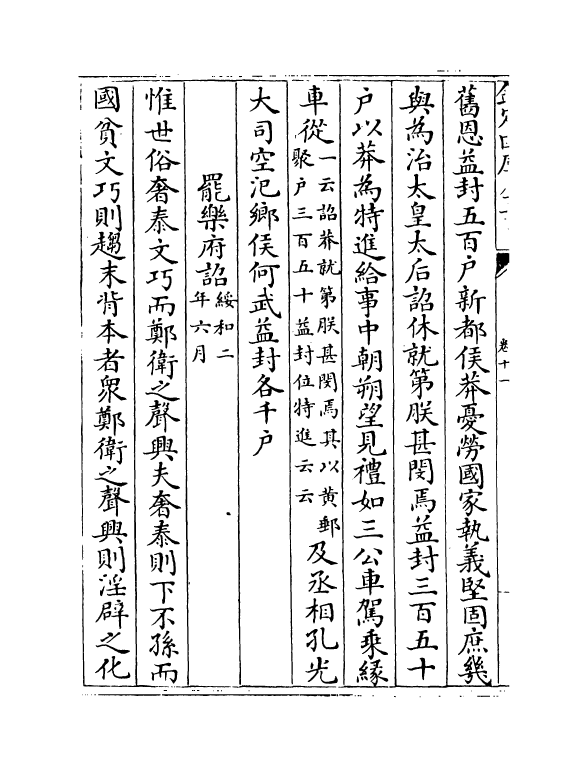 卷十一
舊恩益封五百户新都侯莽憂勞國家執義堅固庶幾
與為治太皇太后詔休就第朕甚閔焉益封三百五十
户以莽為特進給事中朝朔望見禮如三公車駕乘緣
車從一云詔莽就第朕甚閔焉其以黄郵
聚户三百五十益封位特進云云及丞相孔光
大司空氾鄉侯何武益封各千户
罷樂府詔綏和二
年六月
惟世俗奢泰文巧而鄭衛之聲興夫奢泰則下不孫而
國貧文巧則趨末背本者衆鄭衛之聲興則淫辟之化